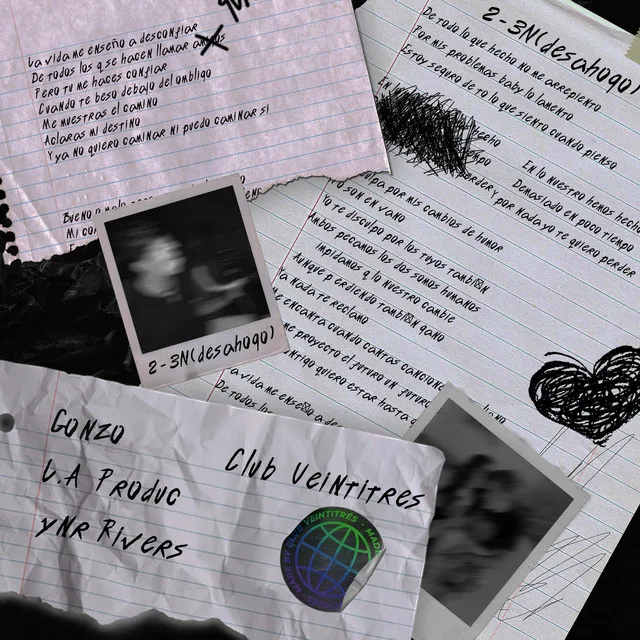 La vida me enseño a desconfiar
De todos los q se hacen llamar
Pero tu me haces confiar
Cuando te beso debajo del ombligo
Me muestras el camino
Aclaras mi destino
Y ya no quiero caminar ni puedo caminar si
Bueno o malo
Mi co
2-3N(desahogo)
De todo lo que hecho no me arrepiento
Por mis problemas baby lo lamento
Estoy seguro de to lo que siento cuando pienso
En lo nuestro hemos hecho
Demasiado en poco tiempo
perder y por nada yo te quiero perder
culpa por mis cambios de humor
o son en vano
Yo te disculpo por los tuyos también
Ambos pecamos los dos somos humanos
Impidamos q lo nuestro cambie
Aunque perdiendo también gano
Ya nada te reclamo
me encanta cuando cantas
me proyecto el futuro un futuro
ontigo quiero estar hasta
La vida me enseño a de
De todos los
2-3N(desahogo)
GONZO
L.A Produc
yNR Rivers
Club VEINTITRES
VEINTITRES • MADE